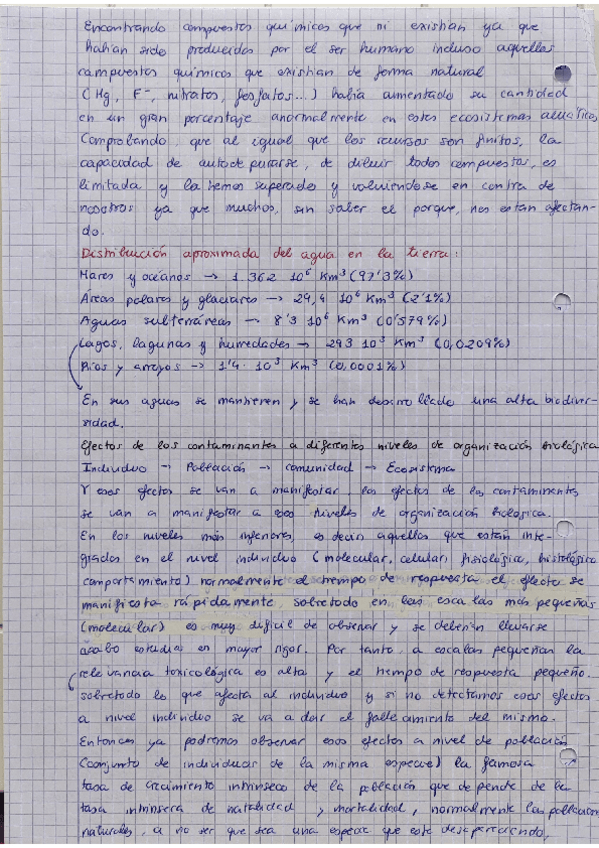 Encontrando compuestos químicos que ni existían ya que
habían sido producidos por el ser humano incluso aquellos
compuestos químicos que existían de forma natural
(Hg, F⁻, nitratos, fosfatos...) había aumentado su cantidad
en un gran porcentaje anormalmente en estos ecosistemas acuáticos
Comprobando, que al igual que los recursos son finitos, la
capacidad de autodepurarse, de diluir todos compuestos, es
limitada y la hemos superado y volviéndose en contra de
nosotros ya que muchos, sin saber el porque, nos están afectan-
do.
Distribución aproximada del agua en la tierra:
Mares y océanos → 1.362 10⁶ Km³ (97'3%)
Áreas polares y glaciares → 29,4 10⁶ Km³ (2'1%)
Aguas subterráneas → 8'3 10⁶ Km³ (0'579%)
Lagos, lagunas y humedades → 293 10³ Km³ (0,0209%)
Ríos y arroyos → 1'4. 10³ Km³ (0,0001%)
En sus aguas se mantienen y se han desarrollado una alta biodiver-
sidad.
Efectos de los contaminantes a diferentes niveles de organización biológica
Individuo → Población → comunidad → Ecosistema
Y esos efectos se van a manifestar, los efectos de los contaminantes
se van a manifestar a esos niveles de organización biológica.
En los niveles más inferiores, es decir aquellos que están inte-
grados en el nivel individuo (molecular, celular, fisiológico, histológico
comportamiento) normalmente el tiempo de respuesta el efecto se
manifiesta rápidamente, sobretodo en las escalas más pequeñas
(molecular) es muy difícil de observar y se deberán llevarse
acabo estudios en mayor rigor. Por tanto, a escalas pequeñas la
relevancia toxicológica es alta y el tiempo de respuesta pequeño.
sobretodo lo que afecta al individuo y si no detectamos esos efectos
a nivel individuo se va a dar el fallecimiento del mismo.
Entonces ya podremos observar esos efectos a nivel de población
(conjunto de individuos de la misma especie) la famosa
tasa de crecimiento intrínseco de la población que depende de la
tasa intrínseca de natalidad y mortalidad, normalmente las poblaciones
naturales, a no ser que sea una especie que este desapareciendo,